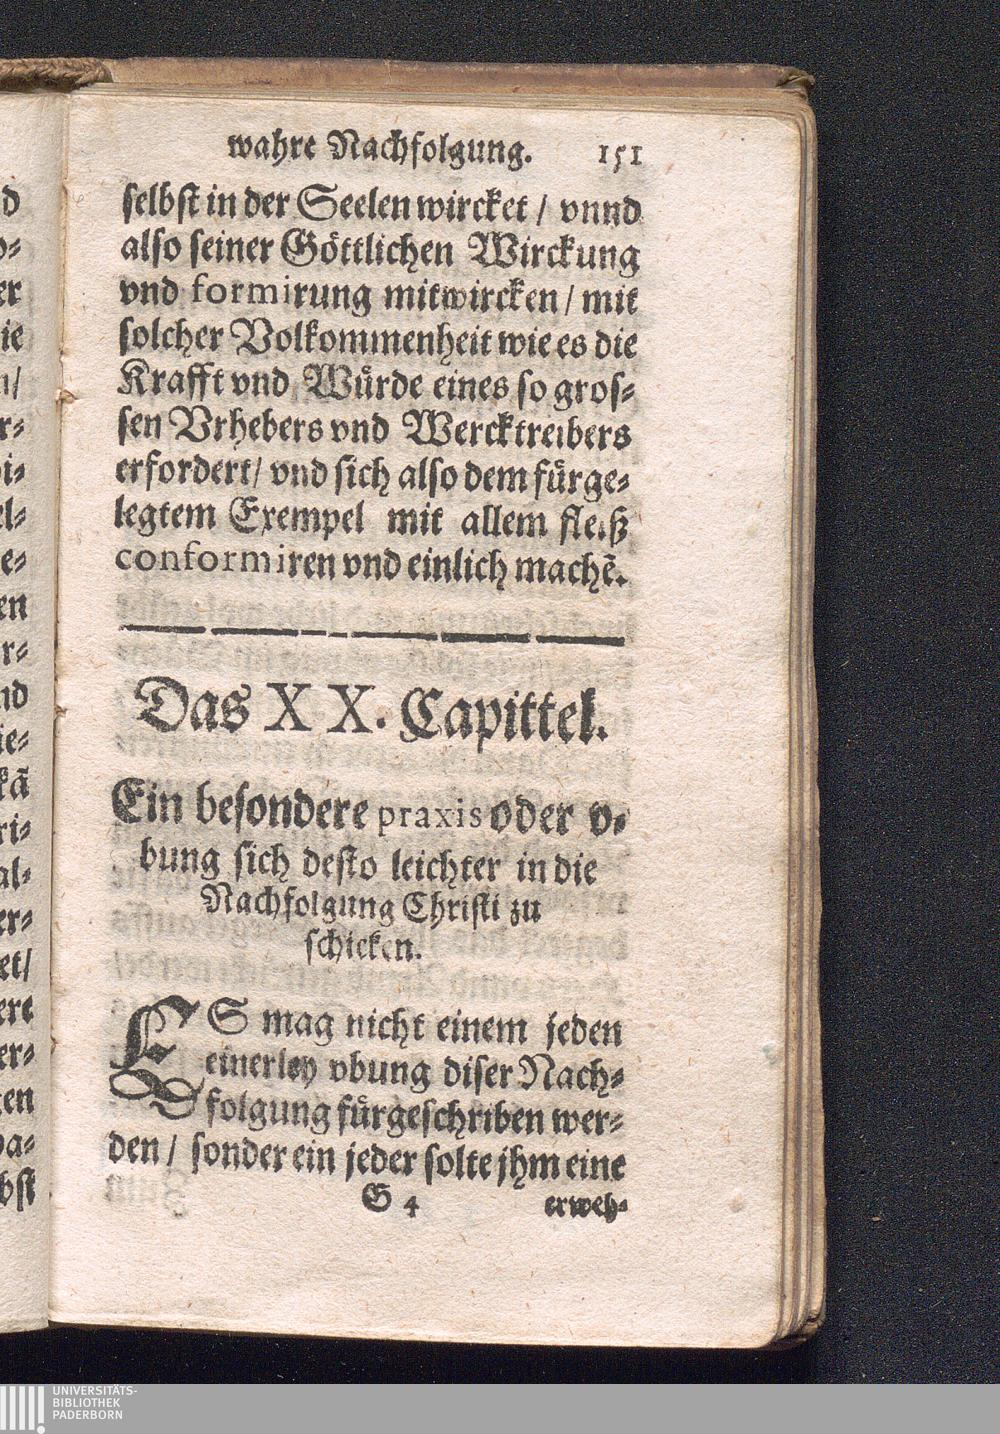 wahre Nachfolgung. 151
selbst in der Seelen wircket / vnnd
also seiner Göttlichen Wirckung
vnd formirung mitwircken / mit
solcher Volkommenheit wie es die
Krafft vnd Würde eines so gros-
sen Vrhebers vnd Wercktreibers
erfordert / vnd sich also dem fürge-
legtem Exempel mit allem fleiß
conformiren vnd einlich machẽ.
Das XX. Capittel.
Ein besondere praxis oder v-
bung sich desto leichter in die
Nachfolgung Christi zu
schicken.
ES mag nicht einem jeden
einerley vbung diser Nach-
folgung fürgeschriben wer-
den / sonder ein jeder solte jhm eine
G 4 erweh-
d
o-
er
ie
n/
r-
i-
el-
e-
en
r-
nd
ie-
kã
ri-
al-
er-
et/
ere
er-
en
a-
bst
UNIVERSITÄTS-
BIBLIOTHEK
PADERBORN